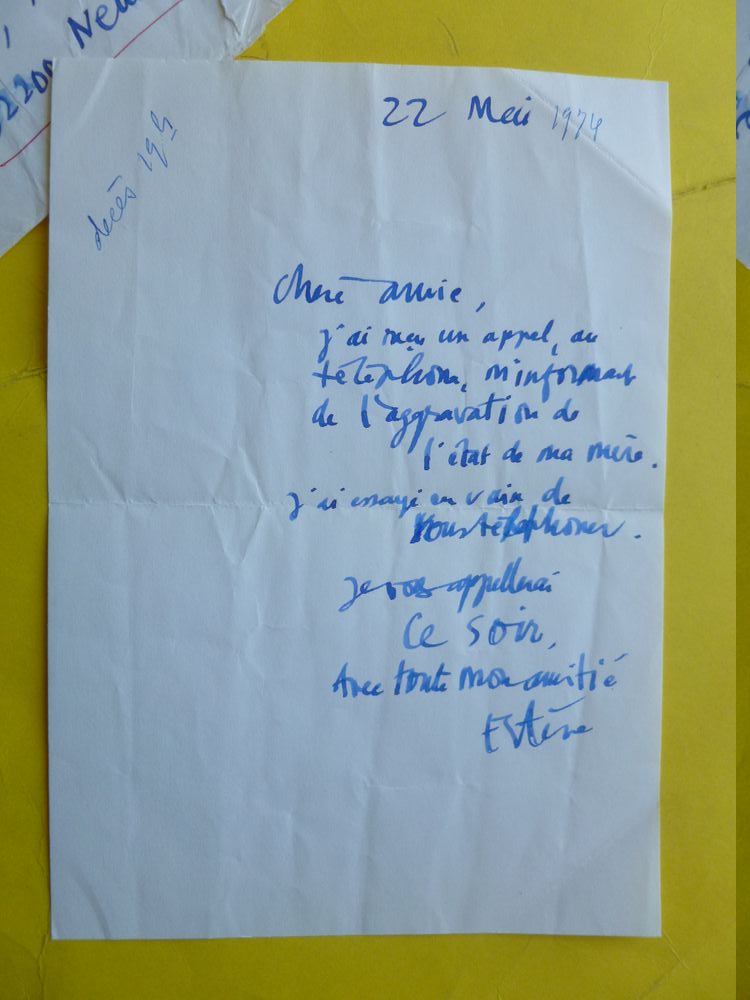 92200 Neu
22 Mai 1974
décès 194
Chère amie,
j'ai reçu un appel, au
téléphone, m'informant
de l'aggravation de
l'état de ma mère.
j'ai essayé en vain de
vous téléphoner.
Je vous appellerai
ce soir,
Avec toute mon amitié
Estève